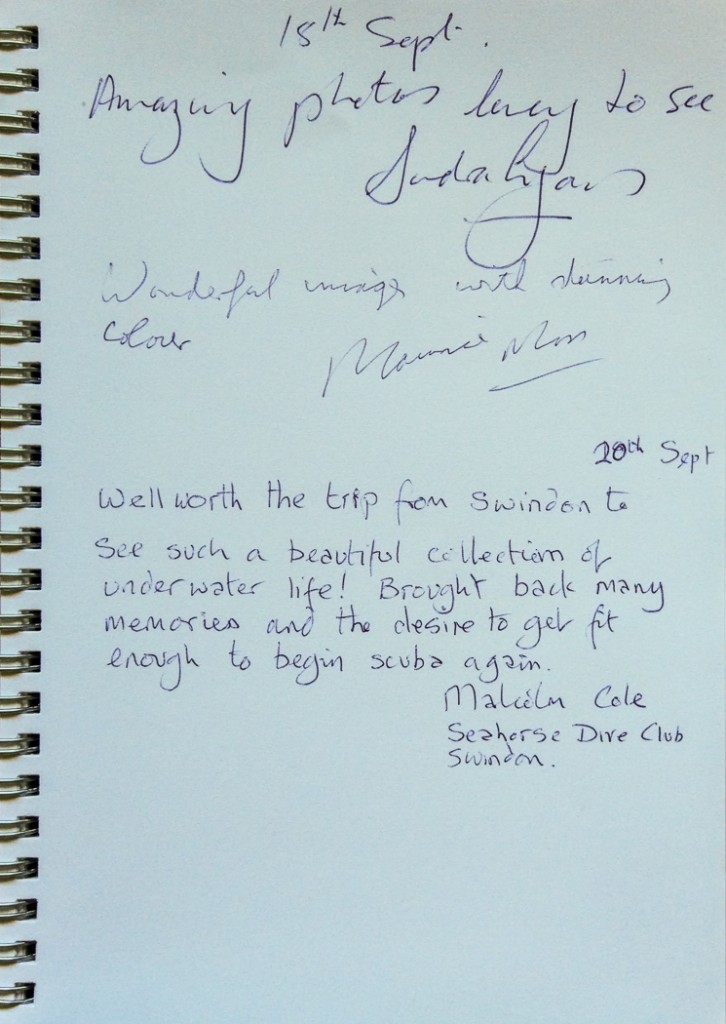 18th Sept.
Amazing photos to see
Wonderful images with stunning
colour
Maurice Moss
20th Sept
Well worth the trip from Swindon to
see such a beautiful collection of
underwater life! Brought back many
memories and the desire to get fit
enough to begin scuba again.
Malcolm Cole
Seahorse Dive Club
Swindon.